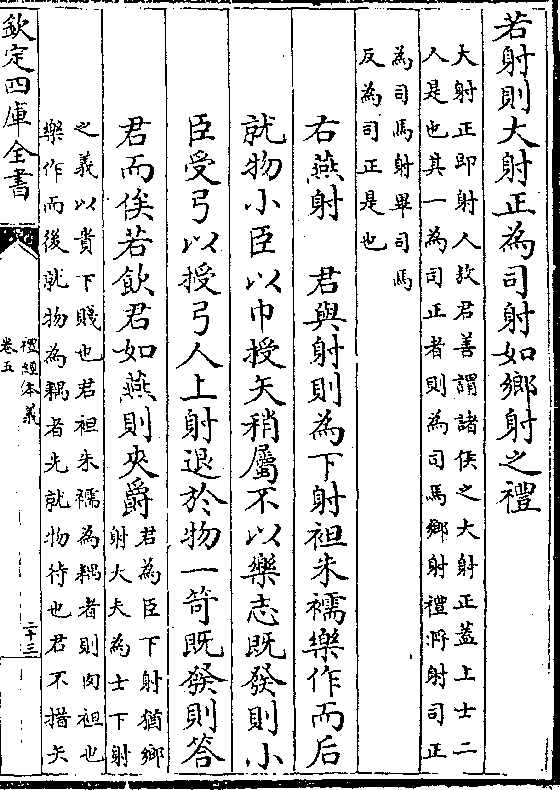 若射則大射正為司射如鄉射之禮
大射正即射人故君善謂諸侯之大射正蓋上士二
人是也其一為司正者則為司馬鄉射禮將射司正
為司馬射畢司馬
反為司正是也
右燕射　君與射則為下射袒朱襦樂作而后
就物小臣以巾授矢稍屬不以樂志既發則小
臣受弓以授弓人上射退於物一笴既發則答
君而俟若飲君如燕則夾爵
君為臣下射猶鄉
射大夫為士下射
之義以貴下賤也君袒朱襦為耦者則肉袒也
樂作而後就物為耦者先就物待也君不搢矢
欽定四庫全書
禮經本義
卷五
二十三